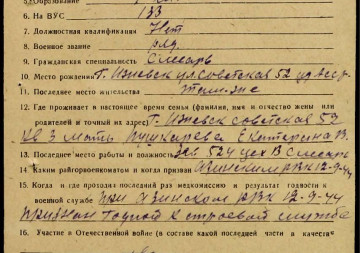 5. Образование
6. На ВУС 133
7. Должностная квалификация Нет
8. Военное звание ряд.
9. Гражданская специальность Слесарь
10. Место рождения Г. Ижевск ул Советская 52
11. Последнее место жительства
12. Где проживает в настоящее время семья (фамилия, имя и отчество жены или
родителей и точный их адрес) Г. Ижевск советская 52
кв 3 мать Пушкарева Екатерина
13. Последнее место работы и должность Зав 524 цех 13 Слесарь
14. Каким райгорвоенкоматом и когда призван Азинским РВК 12-9-44
15. Когда и где проходил последний раз медкомиссию и результат годности к
военной службе при Азинском РВК 12-9-44
признан годной к строевой служба
16. Участие в Отечественной войне (в составе какой последней части в качестве